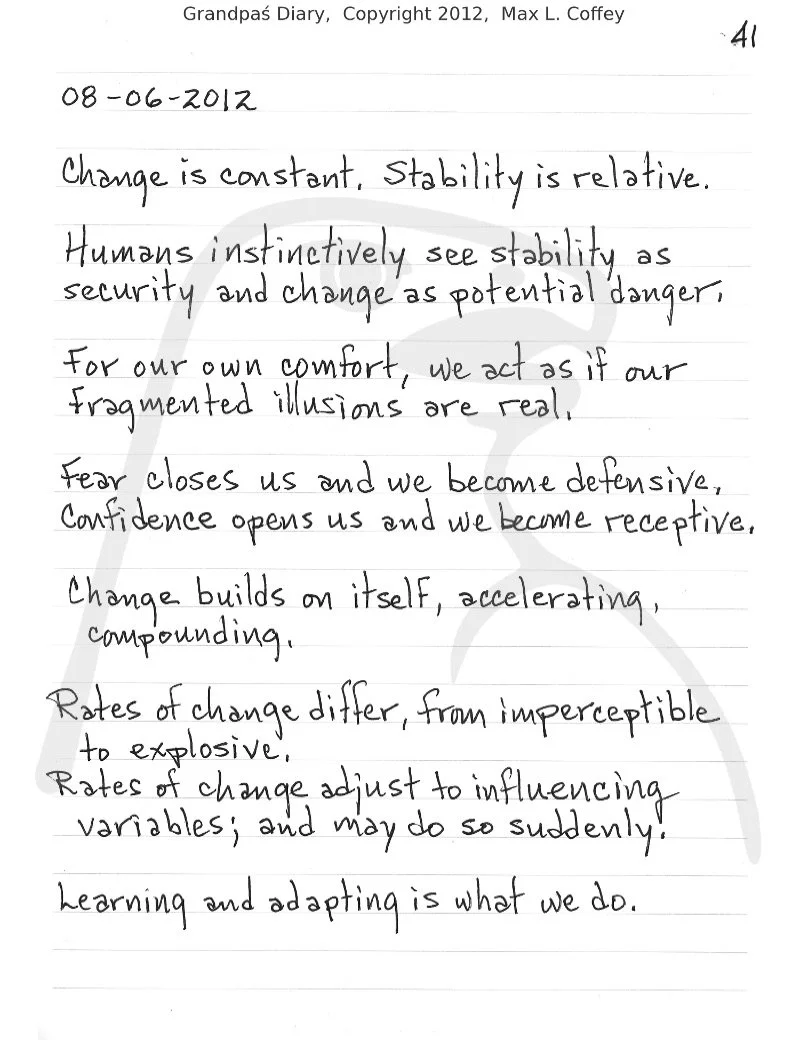 Grandpaś Diary, Copyright 2012, Max L. Coffey
41
08-06-2012
Change is constant. Stability is relative.
Humans instinctively see stability as
security and change as potential danger.
For our own comfort, we act as if our
fragmented illusions are real.
Fear closes us and we become defensive.
Confidence opens us and we become receptive.
Change builds on itself, accelerating,
compounding.
Rates of change differ, from imperceptible
to explosive.
Rates of change adjust to influencing
variables; and may do so suddenly!
Learning and adapting is what we do.